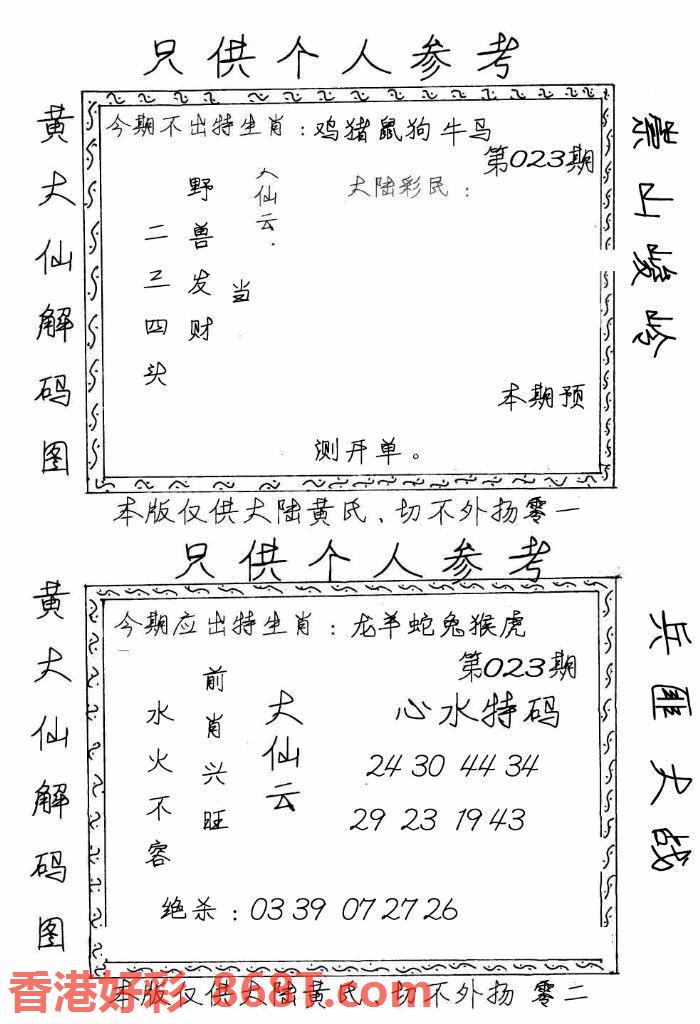 只供个人参考
黄大仙解码图
今期不出特生肖：鸡猪鼠狗牛马
第023期
大仙云．
大陆彩民：
野兽发财
二三四头
当
本期预
测开单。
崇山峻岭
本版仅供大陆黄氏、切不外扬零一
只供个人参考
黄大仙解码图
今期应出特生肖：龙羊蛇兔猴虎
第023期
前肖兴旺
水火不容
大仙云
心水特码
24 30 44 34
29 23 19 43
绝杀：03 39 07 27 26
兵匪大战
香港好彩 868T.com
本版仅供大陆黄氏、切不外扬 零二